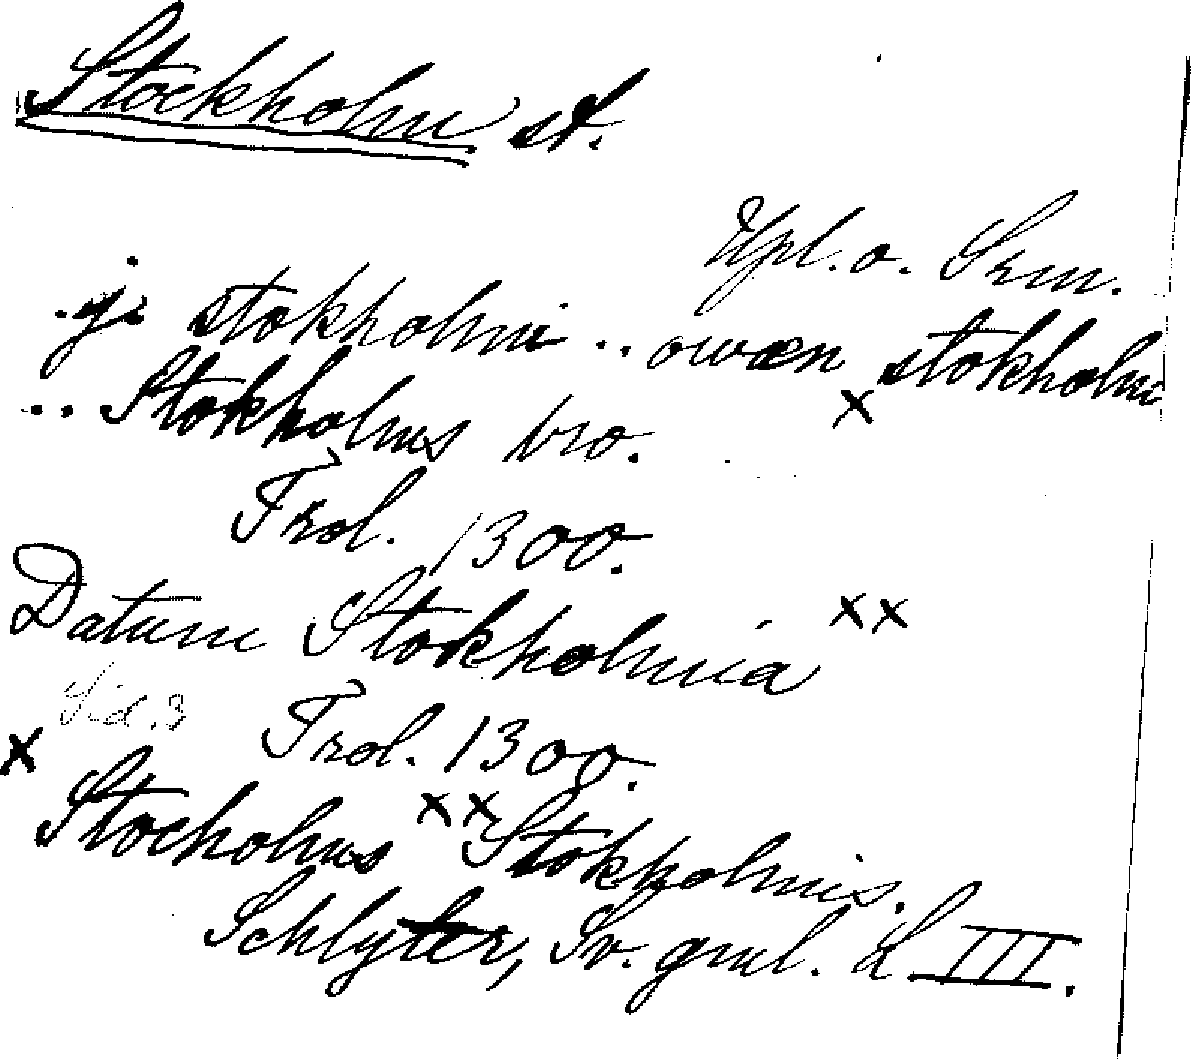 Stockholm st.
Upl. o. Srm.
. ji stokholmi .. owæn stokholm
x
.. Stokholms bro.
Frol. 1300.
Datum Stokholmia xx
Sid. 3 Frol. 1300.
x Stocholms xx Stokholmis.
Schlyter, Sv. gml. L III.